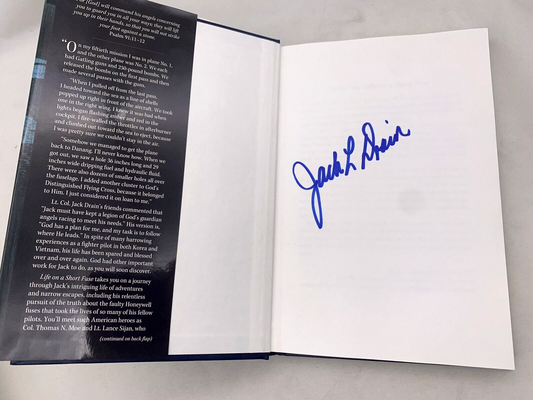 of [God] will command his angels concerning
you to guard you in all your ways; they will lift
you up in their hands, so that you will not strike
your foot against a stone.
Psalm 91:11–12
"On my fiftieth mission I was in plane No. 1,
and the other plane was No. 2. We each
had Gatling guns and 250-pound bombs. We
released the bombs on the first pass and then
made several passes with the guns.
"When I pulled off from the last pass,
I headed toward the sea as a live of shells
popped up right in front of the aircraft. We took
one in the right wing. I knew it was bad when
lights began flashing amber and red in the
cockpit. I fire-walled the throttles in afterburner
and climbed out toward the sea to eject, because
I was pretty sure we couldn't stay in the air.
"Somehow we managed to get the plane
back to Danang. I'll never know how. When we
got out, we saw a hole 36 inches long and 29
inches wide dripping fuel and hydraulic fluid.
There were also dozens of smaller holes all over
the fuselage. I added another cluster to God's
Distinguished Flying Cross, because it belonged
to Him. I just considered it on loan to me."
Lt. Col. Jack Drain's friends commented that
"Jack must have kept a legion of God's guardian
angels racing to meet his needs." His version is,
"God has a plan for me, and my task is to follow
where He leads." In spite of many harrowing
experiences as a fighter pilot in both Korea and
Vietnam, his life has been spared and blessed
over and over again. God had other important
work for Jack to do, as you will soon discover.
Life on a Short Fuse takes you on a journey
through Jack's intriguing life of adventures
and narrow escapes, including his relentless
pursuit of the truth about the faulty Honeywell
fuses that took the lives of so many of his fellow
pilots. You'll meet such American heroes as
Col. Thomas N. Moe and Lt. Lance Sijan, who
(continued on back flap)
Jack L Drain